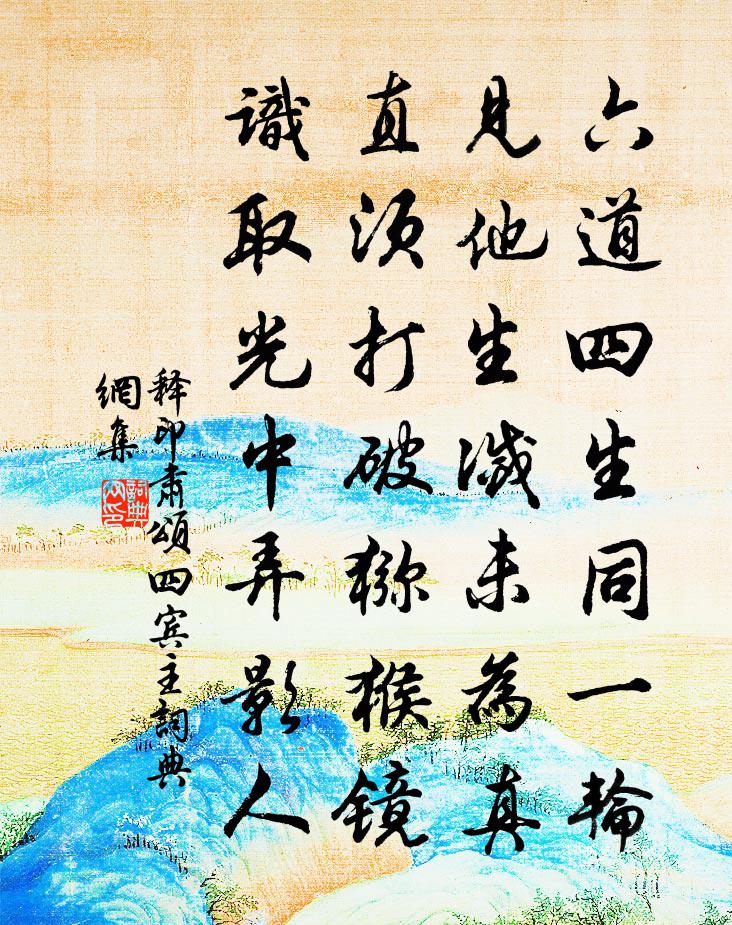 六道四生同一輪
見他生滅未為真
直須打破獼猴鏡
識取光中弄影人
釋印肅頌四宾主詞典
網集
詞典